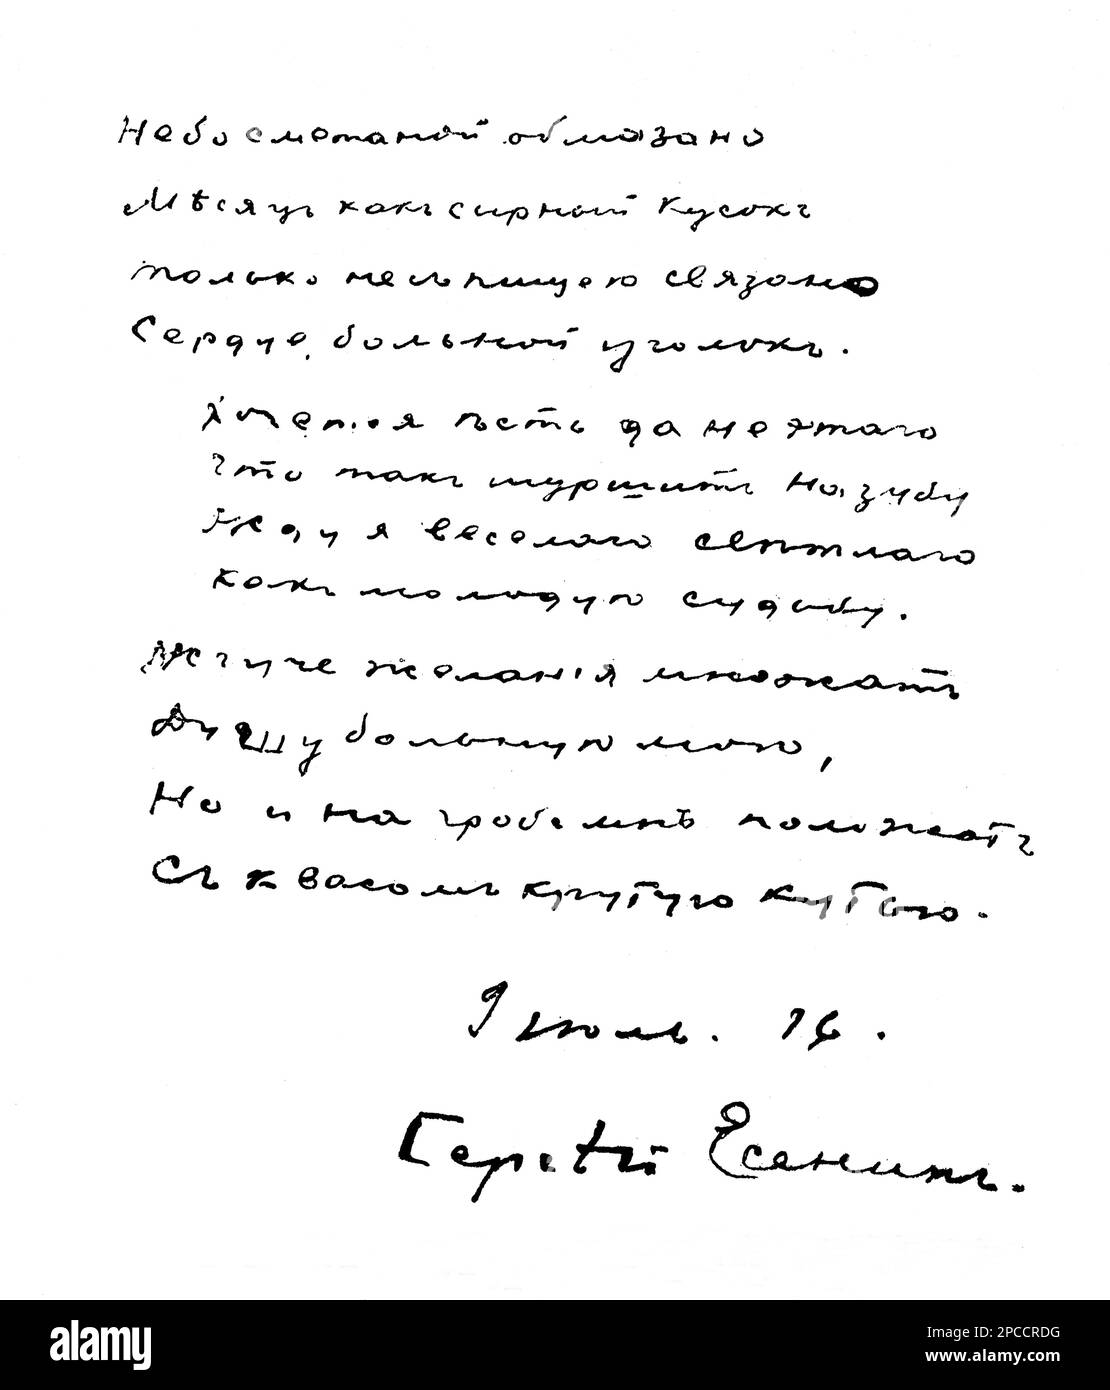 Небо сметаной обмазано
Мѣсяцъ какъ сырный кусокъ
только не съ пищею связано
Сердце, больной уголокъ.
Хочется ѣсть да не этаго
Что такъ шуршитъ на зубу
Жду я веселаго свѣтлаго
какъ молодую судьбу.
Жгуче желанія множатъ
Душу больную мою,
Но и на гробе мнѣ положатъ
Съ квасомъ крутую кутью.
9 июль. 16.
Сергѣй Есенинъ.
alamy
Image ID: 2PCCRDG
www.alamy.com